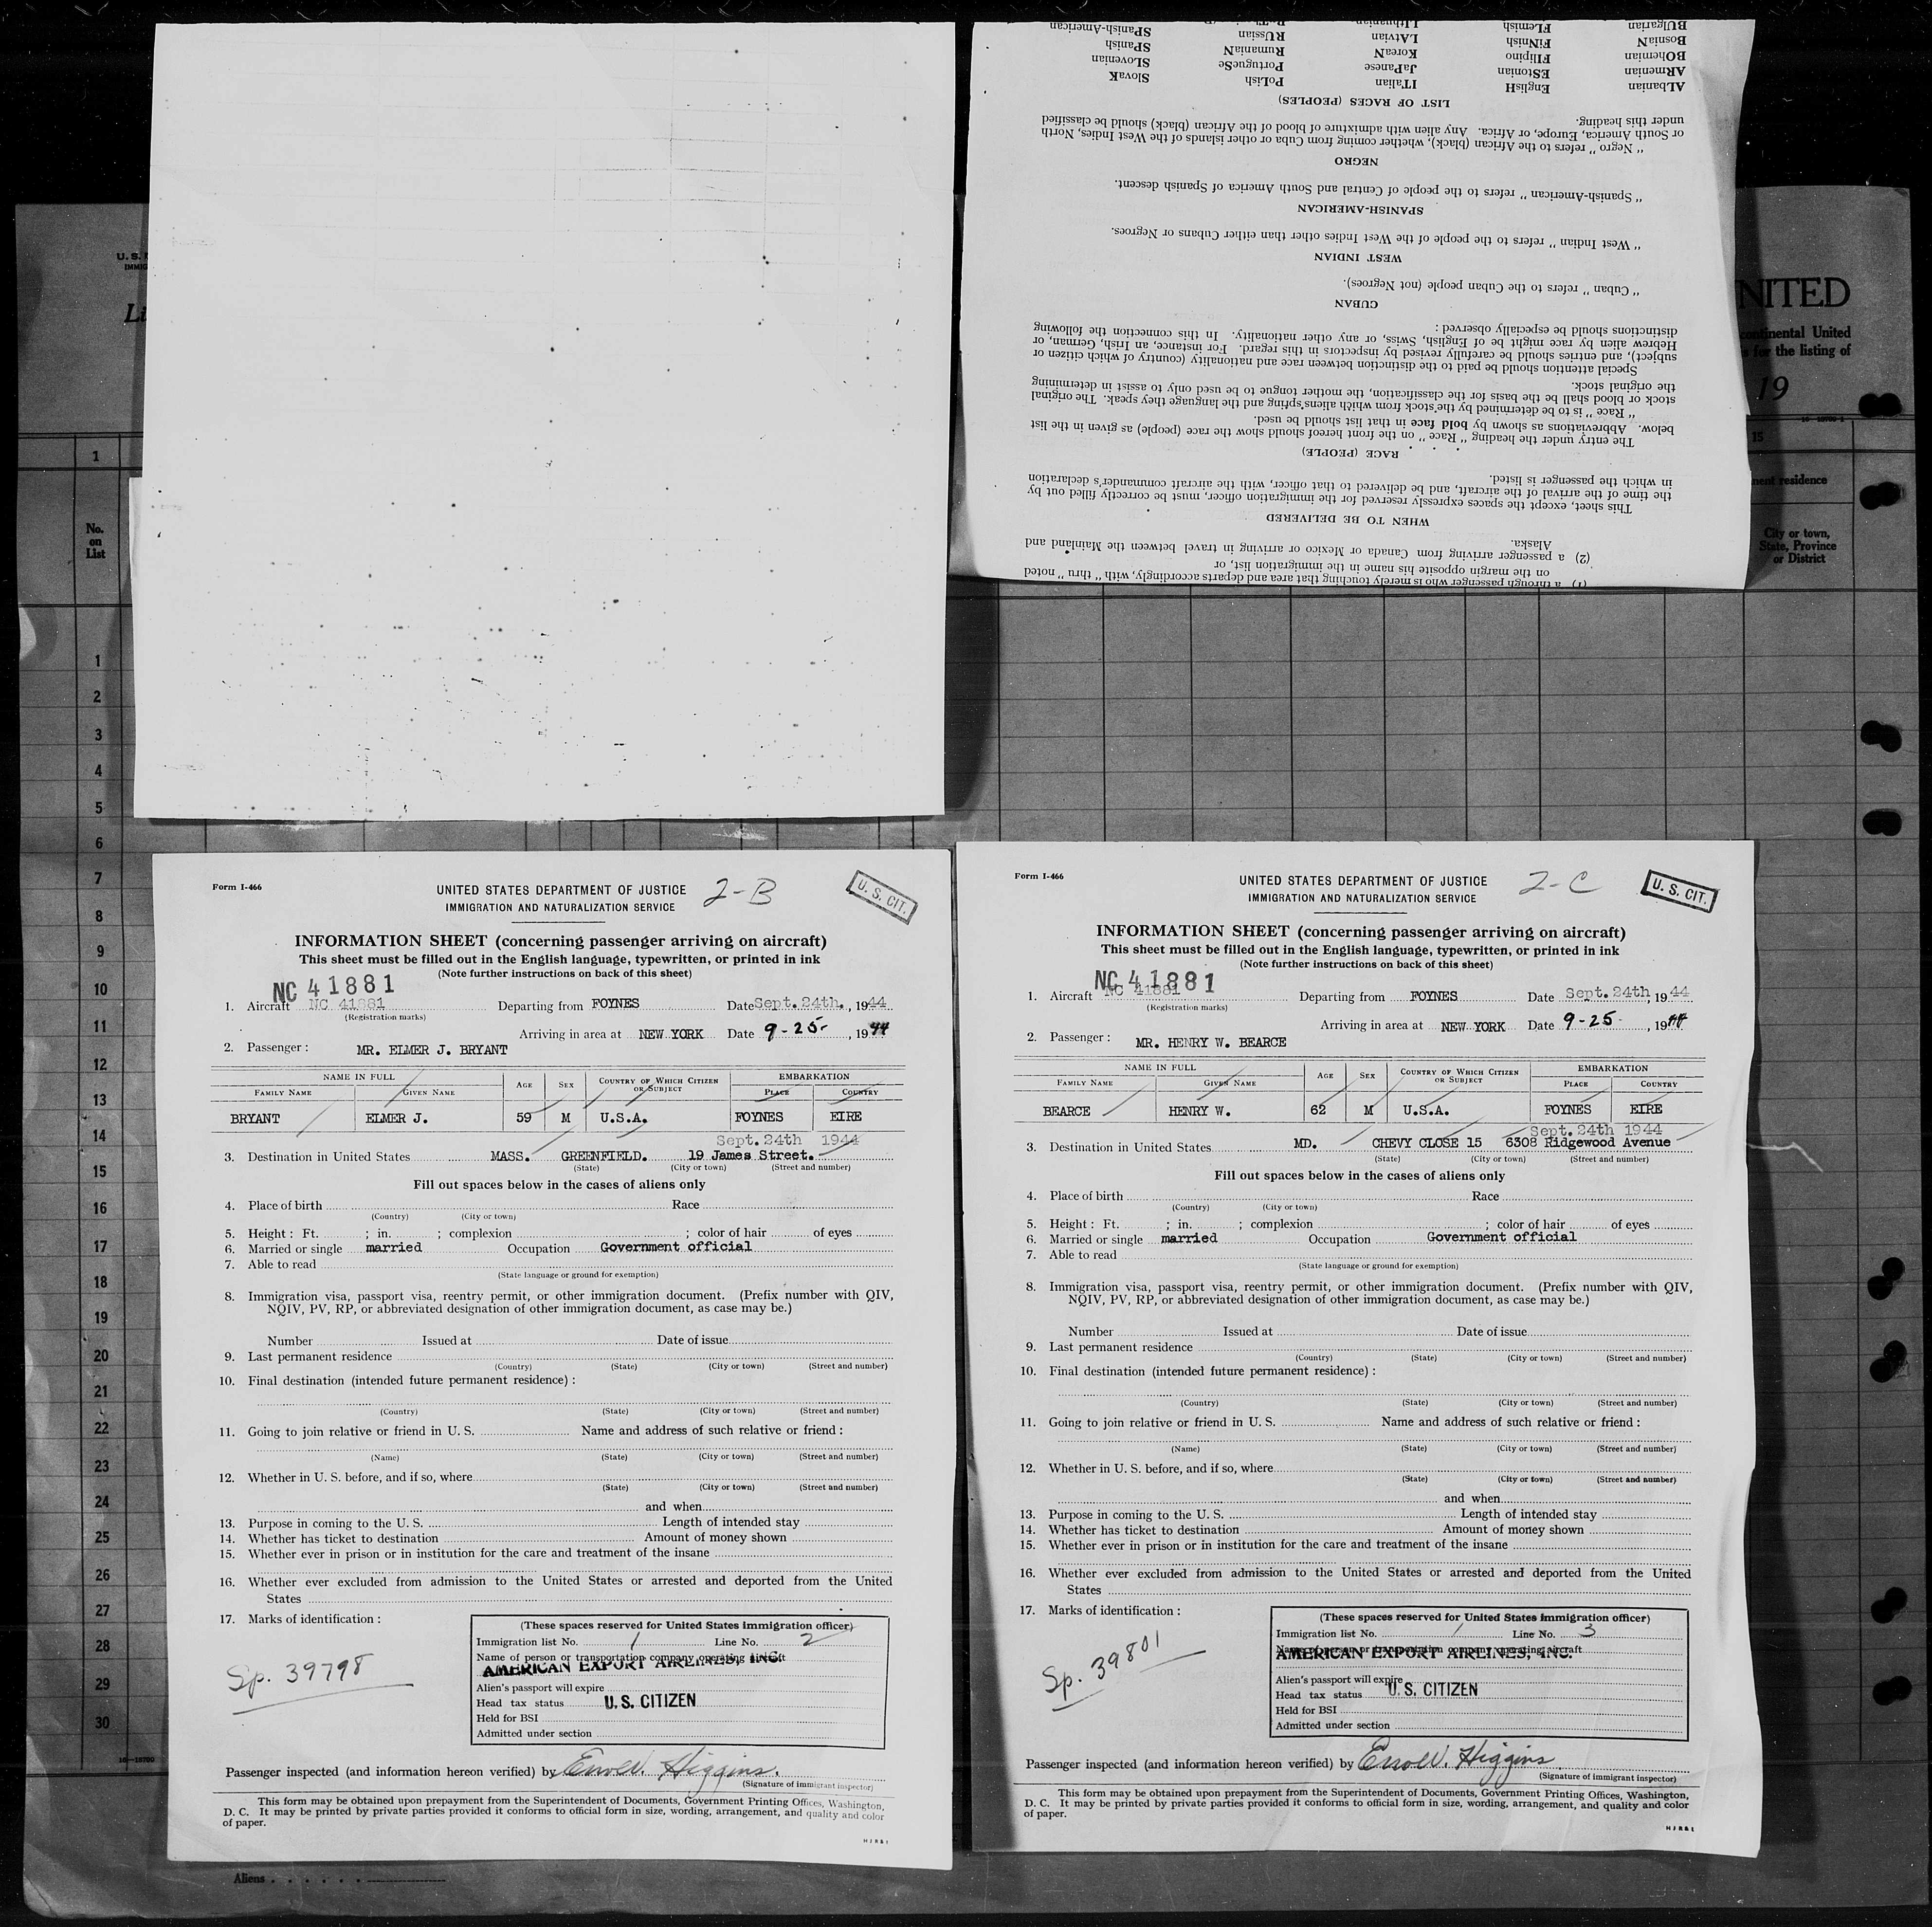 SPanish-American RUssian LAtvian FLemish BUlgarian
SPanish RumaniaN KoreaN FiNnish BosniaN
SLOvenian PortugueSe JaPanese FIlipino BOhemian
SlovaK PoLish ITalian EngliSH ALbanian
EStonian ARmenian
LIST OF RACES (PEOPLES)
" Negro " refers to the African (black), whether coming from Cuba or other islands of the West Indies, North
or South America, Europe, or Africa. Any alien with admixture of blood of the African (black) should be classified
under this heading.
NEGRO
" Spanish-American " refers to the people of Central and South America of Spanish descent.
SPANISH-AMERICAN
" West Indian " refers to the people of the West Indies other than either Cubans or Negroes.
WEST INDIAN
" Cuban " refers to the Cuban people (not Negroes).
CUBAN
Special attention should be paid to the distinction between race and nationality (country of which citizen or
subject), and entries should be carefully revised by inspectors in this regard. For instance, an Irish, German, or
Hebrew alien by race might be of English, Swiss, or any other nationality. In this connection the following
distinctions should be especially observed :
" Race " is to be determined by the stock from which aliens spring and the language they speak. The original
stock or blood shall be the basis for the classification, the mother tongue to be used only to assist in determining
the original stock.
The entry under the heading " Race " on the front hereof should show the race (people) as given in the list
below. Abbreviations as shown by bold face in that list should be used.
RACE (PEOPLE)
This sheet, except the spaces expressly reserved for the immigration officer, must be correctly filled out by
the time of the arrival of the aircraft, and be delivered to that officer, with the aircraft commander's declaration
in which the passenger is listed.
WHEN TO BE DELIVERED
(2) a passenger arriving from Canada or Mexico or arriving in travel between the Mainland and
Alaska.
(1) a through passenger who is merely touching that area and departs accordingly, with " thru " noted
on the margin opposite his name in the immigration list, or
U. S.
IMMIG
Li
NITED
continental United
s for the listing of
19
1
15
No.
on
List
nent residence
City or town,
State, Province
or District
1
2
3
4
5
6
7
8
9
10
11
12
13
14
15
16
17
18
19
20
21
22
23
24
25
26
27
28
29
30
Form I-466
UNITED STATES DEPARTMENT OF JUSTICE 2-B U. S. CIT.
IMMIGRATION AND NATURALIZATION SERVICE
INFORMATION SHEET (concerning passenger arriving on aircraft)
This sheet must be filled out in the English language, typewritten, or printed in ink
(Note further instructions on back of this sheet)
NC 41881
1. Aircraft NC 41881 Departing from FOYNES Date Sept. 24th. , 1944
(Registration marks)
Arriving in area at NEW YORK Date 9-25- , 1944
2. Passenger : MR. ELMER J. BRYANT
NAME IN FULL AGE SEX COUNTRY OF WHICH CITIZEN OR SUBJECT EMBARKATION
FAMILY NAME GIVEN NAME PLACE COUNTRY
BRYANT ELMER J. 59 M U.S.A. FOYNES EIRE
Sept. 24th 1944
3. Destination in United States MASS. GREENFIELD. 19 James Street.
(State) (City or town) (Street and number)
Fill out spaces below in the cases of aliens only
4. Place of birth Race
(Country) (City or town)
5. Height : Ft. ; in. ; complexion ; color of hair of eyes
6. Married or single married Occupation Government official
7. Able to read
(State language or ground for exemption)
8. Immigration visa, passport visa, reentry permit, or other immigration document. (Prefix number with QIV,
NQIV, PV, RP, or abbreviated designation of other immigration document, as case may be.)
Number Issued at Date of issue
9. Last permanent residence
(Country) (State) (City or town) (Street and number)
10. Final destination (intended future permanent residence) :
(Country) (State) (City or town) (Street and number)
11. Going to join relative or friend in U. S. Name and address of such relative or friend :
(Name) (State) (City or town) (Street and number)
12. Whether in U. S. before, and if so, where
(State) (City or town) (Street and number)
and when
13. Purpose in coming to the U. S. Length of intended stay
14. Whether has ticket to destination Amount of money shown
15. Whether ever in prison or in institution for the care and treatment of the insane
16. Whether ever excluded from admission to the United States or arrested and deported from the United
States
17. Marks of identification :
Sp. 39798
(These spaces reserved for United States immigration officer)
Immigration list No. 1 Line No. 2
Name of person or transportation company operating aircraft
AMERICAN EXPORT AIRLINES, INC.
Alien's passport will expire
Head tax status U.S. CITIZEN
Held for BSI
Admitted under section
Passenger inspected (and information hereon verified) by Errol W. Higgins.
(Signature of immigrant inspector)
This form may be obtained upon prepayment from the Superintendent of Documents, Government Printing Offices, Washington,
D. C. It may be printed by private parties provided it conforms to official form in size, wording, arrangement, and quality and color
of paper.
16-18700
Aliens
Form I-466
UNITED STATES DEPARTMENT OF JUSTICE 2-C U. S. CIT.
IMMIGRATION AND NATURALIZATION SERVICE
INFORMATION SHEET (concerning passenger arriving on aircraft)
This sheet must be filled out in the English language, typewritten, or printed in ink
(Note further instructions on back of this sheet)
NC 41881
1. Aircraft NC 41881 Departing from FOYNES Date Sept. 24th , 1944
(Registration marks)
Arriving in area at NEW YORK Date 9-25 , 1944
2. Passenger : MR. HENRY W. BEARCE
NAME IN FULL AGE SEX COUNTRY OF WHICH CITIZEN OR SUBJECT EMBARKATION
FAMILY NAME GIVEN NAME PLACE COUNTRY
BEARCE HENRY W. 62 M U.S.A. FOYNES EIRE
Sept. 24th 1944
3. Destination in United States MD. CHEVY CLOSE 15 6308 Ridgewood Avenue
(State) (City or town) (Street and number)
Fill out spaces below in the cases of aliens only
4. Place of birth Race
(Country) (City or town)
5. Height : Ft. ; in. ; complexion ; color of hair of eyes
6. Married or single married Occupation Government official
7. Able to read
(State language or ground for exemption)
8. Immigration visa, passport visa, reentry permit, or other immigration document. (Prefix number with QIV,
NQIV, PV, RP, or abbreviated designation of other immigration document, as case may be.)
Number Issued at Date of issue
9. Last permanent residence
(Country) (State) (City or town) (Street and number)
10. Final destination (intended future permanent residence) :
(Country) (State) (City or town) (Street and number)
11. Going to join relative or friend in U. S. Name and address of such relative or friend :
(Name) (State) (City or town) (Street and number)
12. Whether in U. S. before, and if so, where
(State) (City or town) (Street and number)
and when
13. Purpose in coming to the U. S. Length of intended stay
14. Whether has ticket to destination Amount of money shown
15. Whether ever in prison or in institution for the care and treatment of the insane
16. Whether ever excluded from admission to the United States or arrested and deported from the United
States
17. Marks of identification :
Sp. 39801
(These spaces reserved for United States immigration officer)
Immigration list No. 1 Line No. 3
Name of person or transportation company operating aircraft
AMERICAN EXPORT AIRLINES, INC.
Alien's passport will expire
Head tax status U.S. CITIZEN
Held for BSI
Admitted under section
Passenger inspected (and information hereon verified) by Errol W. Higgins
(Signature of immigrant inspector)
This form may be obtained upon prepayment from the Superintendent of Documents, Government Printing Offices, Washington,
D. C. It may be printed by private parties provided it conforms to official form in size, wording, arrangement, and quality and color
of paper.